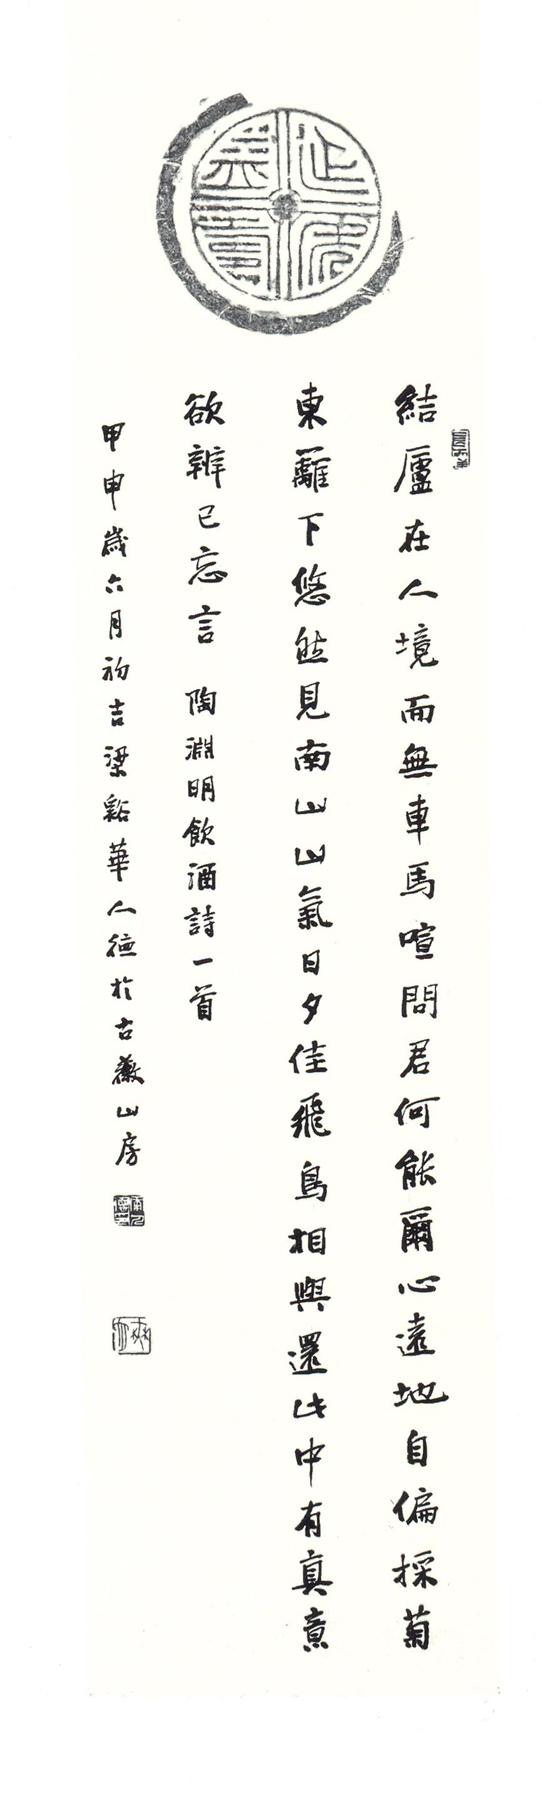 結廬在人境而無車馬喧問君何能爾心遠地自偏採菊
東籬下悠然見南山山氣日夕佳飛鳥相與還此中有真意
欲辨已忘言 陶淵明飲酒詩一首
甲申歲六月初吉梁谿華人德於古薇山房